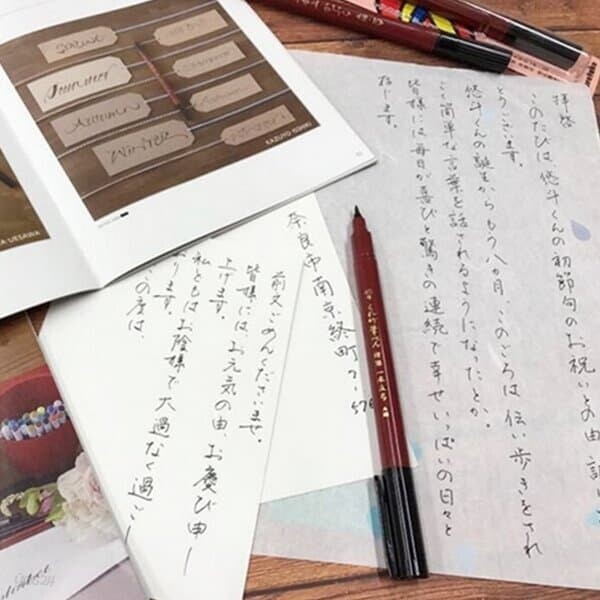 spring
Summer
Autumn
Winter
KAZUYO ISHIKI
A UESAWA
拝啓
このたびは、悠斗くんの初節句のお祝いとの由、誠に
とうございます。
悠斗くんの誕生からもう八か月、このごろは、伝い歩きをされ
ごく簡単な言葉を話されるようになったとか。
皆様には毎日が喜びと驚きの連続で幸せいっぱいの日々と
存じます。
奈良市南京終町7-576
前文ごめんくださいませ。
皆様には、お元気の由、お慶び申し
上げます。
私どもは、お陰様で大過なく過ごし
おります。
この度は、
くれ竹筆ぺん